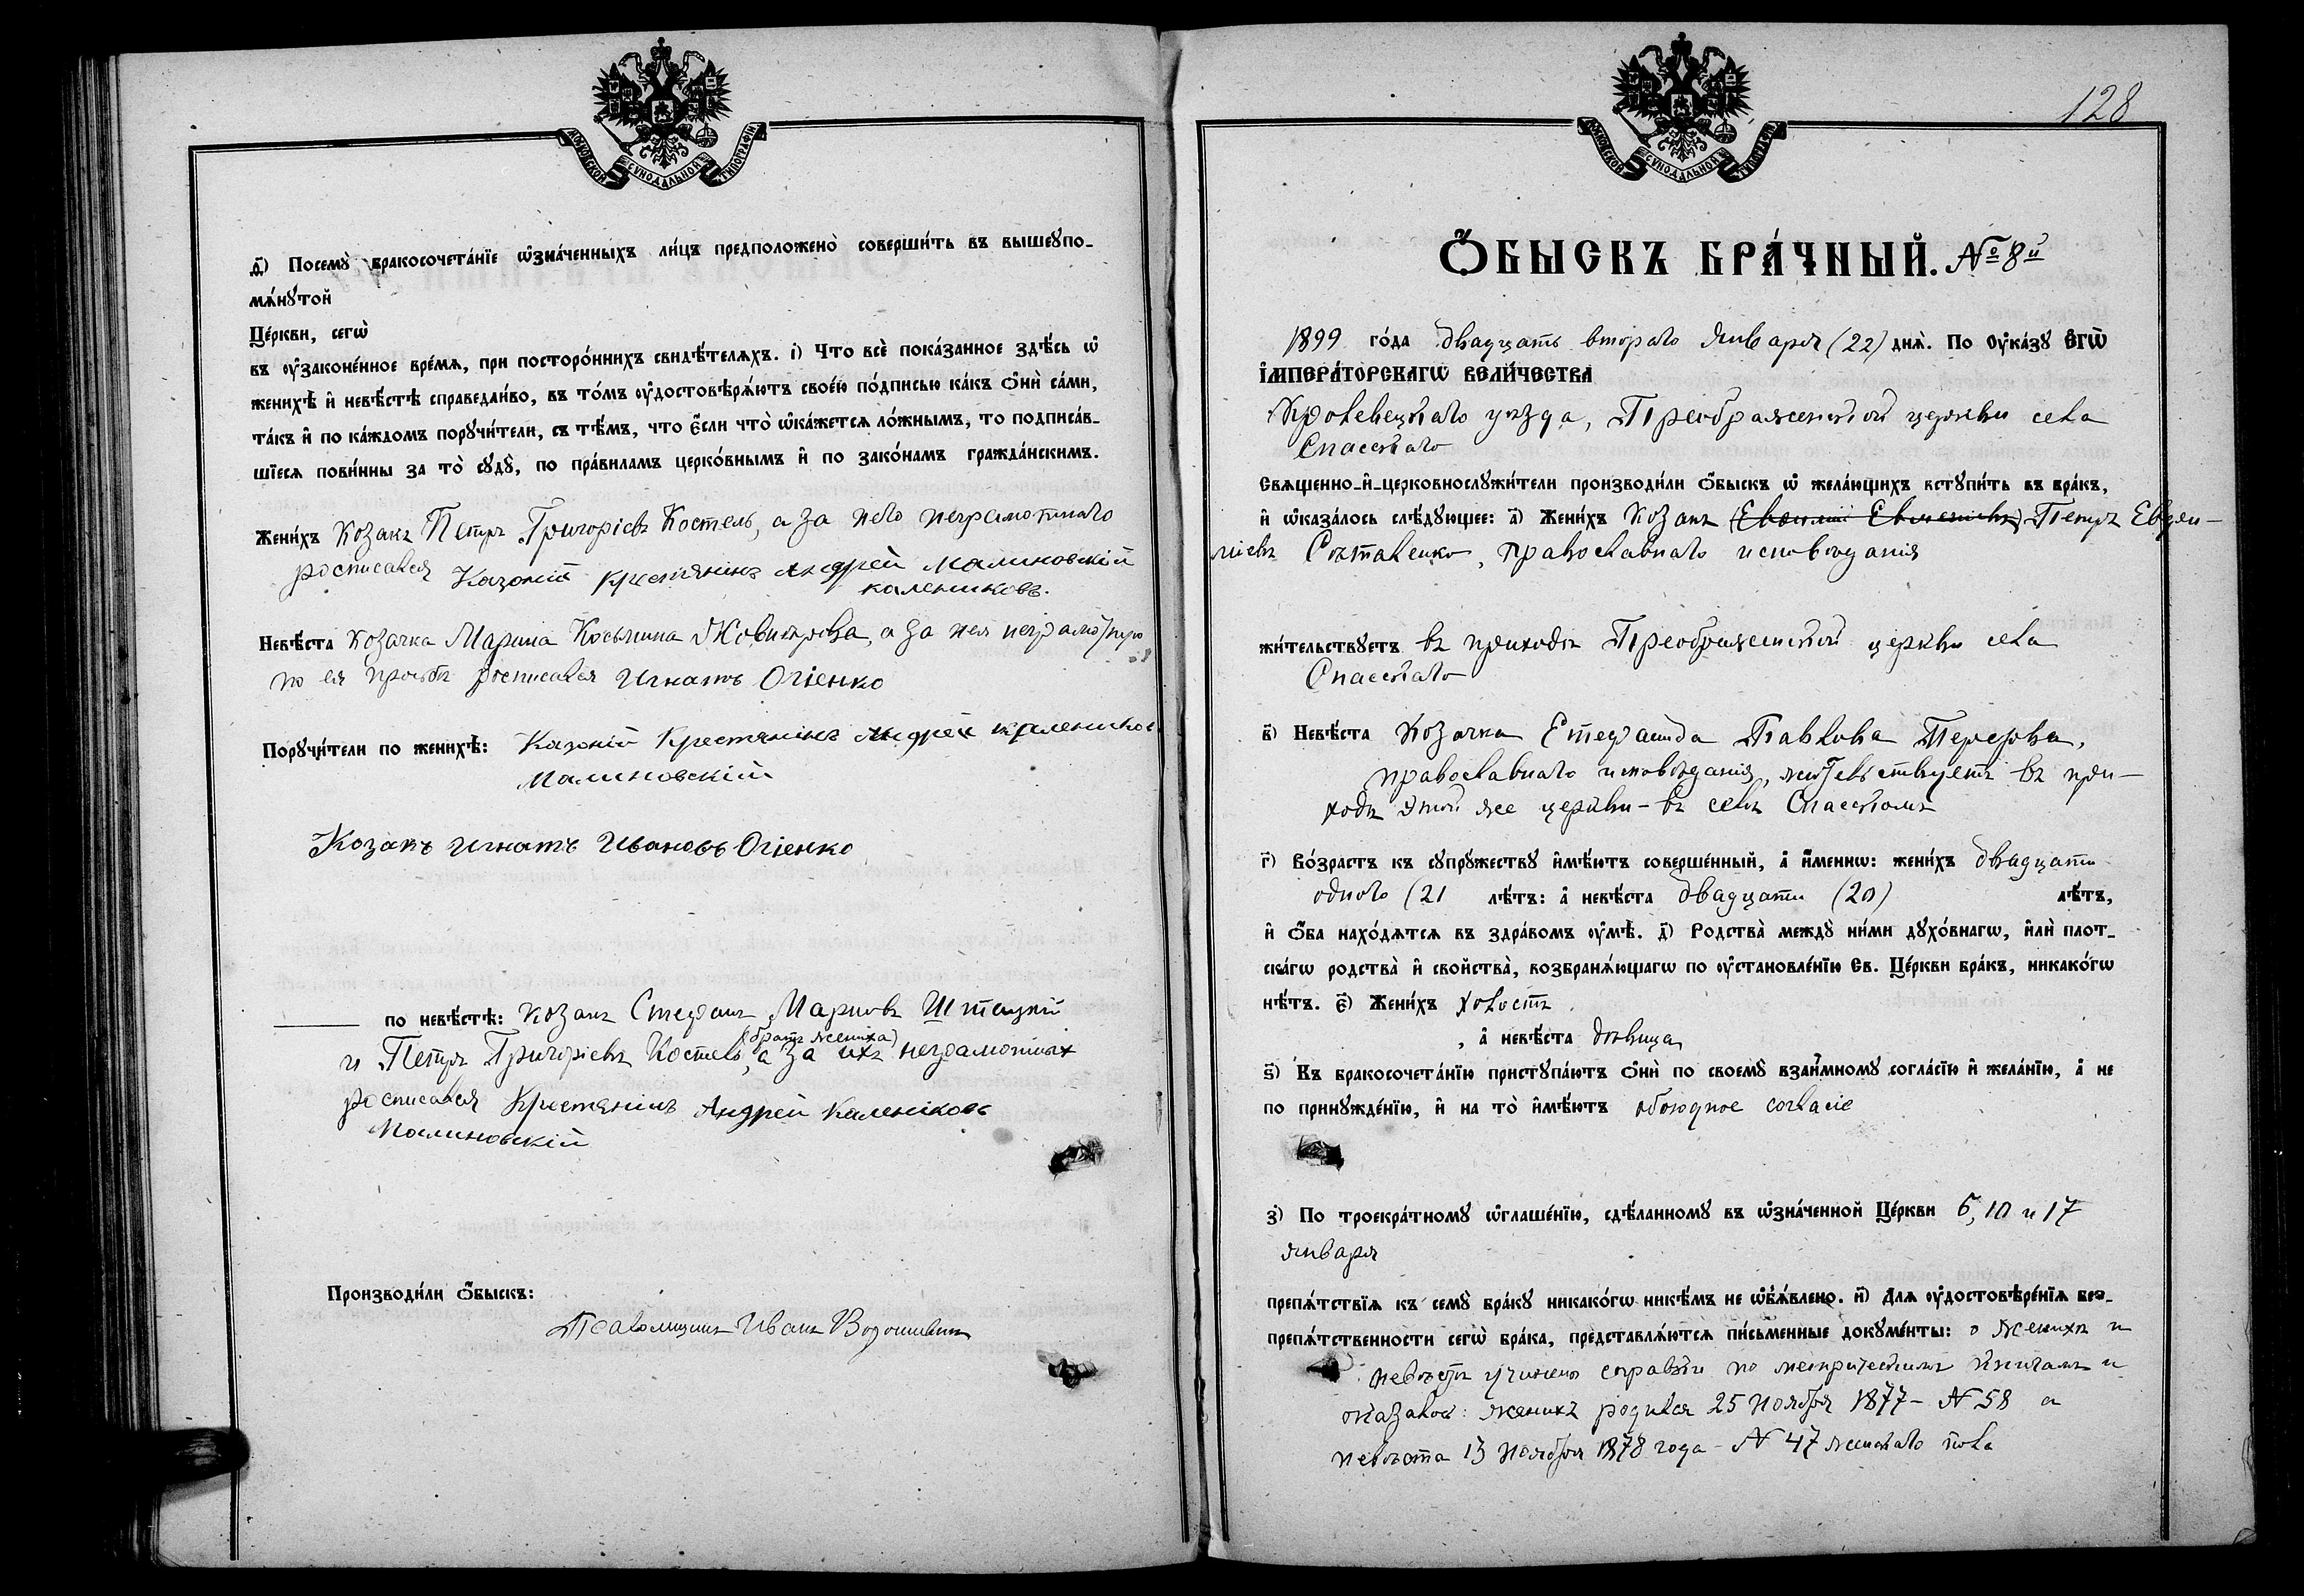 МОСКОВСКОЙ СѴНОДАЛЬНОЙ ТИПОГРАФІИ
д҃) Посемꙋ̀ бракосочета́нїе ѡ҆зна́ченныхъ ли́цъ предположено̀ соверши́ть въ вышеꙋпо-
мѧ́нꙋтой
Це́ркви, сегѡ̀
въ ᲂу҆законе́нное вре́мѧ, при посторо́ннихъ свидѣ́телѧхъ. і҃) Что̀ всѐ пока́занное здѣ́сь ѡ҆
женихѣ̀ и҆ невѣ́стѣ справедли́во, въ то́мъ ᲂу҆достовѣрѧ́ютъ свое́ю по́дписью ка́къ ѻ҆нѝ са́ми,
та́къ и҆ по ка́ждомъ порꙋчи́тели, съ тѣ́мъ, что є҆́сли что̀ ѡ҆ка́жетсѧ ло́жнымъ, то подписа́в-
шїесѧ пови́нны за то̀ сꙋдꙋ̀, по пра́виламъ церко́внымъ и҆ по зако́намъ гражда́нскимъ.
Жени́хъ Козакъ Петръ Григорьевъ Костель, а за него неграмотнаго
росписался Казоній крестянінъ Андрей Малиновскій
калениковъ.
Невѣ́ста козачка Марина Косьмина, а за нея неграмотную
по ея просьбѣ росписался Игнатъ Огіенко
Порꙋчи́тели по женихѣ̀: Казоній Крестянінъ Андрей каленіковъ
Малиновскій
Козакъ Игнатъ Ивановъ Огіенко
по невѣ́стѣ: козакъ Стефанъ Марковъ Штацкій
(братъ жениха)
и Петръ Григорьевъ Костель, а за ихъ неграмотных
росписался Крестянінъ Андрей Каленіковъ
Малиновскій
Производи́ли ѻ҆́быскъ:
Псаломщикъ Иванъ
128
МОСКОВСКОЙ СѴНОДАЛЬНОЙ ТИПОГРАФІИ
Ѻ҆́БЫСКЪ БРА́ЧНЫЙ. № 8й
1899 го́да двадцать второго Января (22) днѧ̀. По Оу҆ка́зꙋ Є҆гѡ̀
І҆мпера́торскагѡ Вели́чества
Кролевецкаго уѣзда, Преображенской церкви села
Спасскаго
Свѧщенно-и҆-церковнослꙋжи́тели производи́ли ѻ҆́быскъ ѡ҆ жела́ющихъ встꙋпи́ть въ бра́къ,
и҆ ѡ҆каза́лось слѣ́дꙋющее: а҃) Жени́хъ Козакъ Петръ Евфи-
міевъ, православнаго исповѣданія
жи́тельствꙋетъ въ приходѣ Преображенской церкви села
Спасскаго
в҃) Невѣ́ста Козачка Павлова,
православнаго исповѣданія, жительствуетъ въ при-
ходѣ этой же церкви - въ селѣ Спасскомъ
г҃) Во́зрастъ къ сꙋпрꙋ́жествꙋ и҆мѣ́ютъ соверше́нный, а҆ и҆́менно: жени́хъ двадцати
одного (21 лѣ́тъ: а҆ невѣ́ста двадцати (20) лѣ́тъ,
и҆ ѻ҆́ба нахо́дѧтсѧ въ здра́вомъ ᲂу҆мѣ̀. д҃) Родства̀ междꙋ̀ ни́ми дꙋхо́внагѡ, и҆лѝ плот-
ска́гѡ родства̀ и҆ свойства̀, возбранѧ́ющагѡ по ᲂу҆становле́нїю Св. Це́ркви бра́къ, никако́гѡ
нѣ́тъ. є҃) Жени́хъ холостъ
, а҆ невѣ́ста дѣвица
ѕ҃) Къ бракосочета́нїю пристꙋпа́ютъ ѻ҆нѝ по своемꙋ̀ взаи́мномꙋ согла́сїю и҆ жела́нїю, а҆ не
по принꙋжде́нїю, и҆ на то̀ и҆мѣ́ютъ обоюдное согласіе
з҃) По троекра́тномꙋ ѡ҆глаше́нїю, сдѣ́ланномꙋ въ ѡ҆зна́ченной Це́ркви 6, 10 и 17
января
препѧ́тствїѧ къ семꙋ̀ бра́кꙋ никако́гѡ никѣ́мъ не ѡ҆б̾ѧ́влено. и҃) Длѧ ᲂу҆достовѣре́нїѧ без-
препѧ́тственности сегѡ̀ бра́ка, представлѧ́ютсѧ пи́сьменные докꙋме́нты: о женихѣ и
невѣстѣ учинены справки по метрическимъ книгамъ и
оказалось: женихъ родился 25 Ноября 1877 - № 58 а
невѣста 13 Ноября 1878 года - № 47 женскаго пола